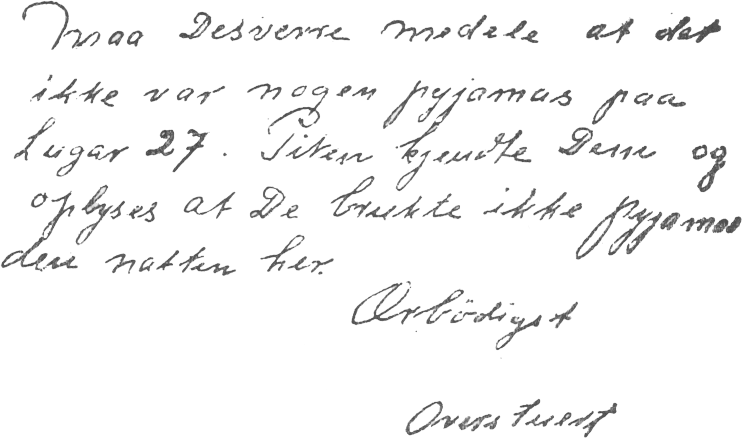 Maa Desverre medele at det
ikke var nogen pyjamas paa
Lugar 27. Piken kjendte Dem og
oplyses at De brukte ikke pyjamas
den natten her.
Ærbödigst
Overstuert